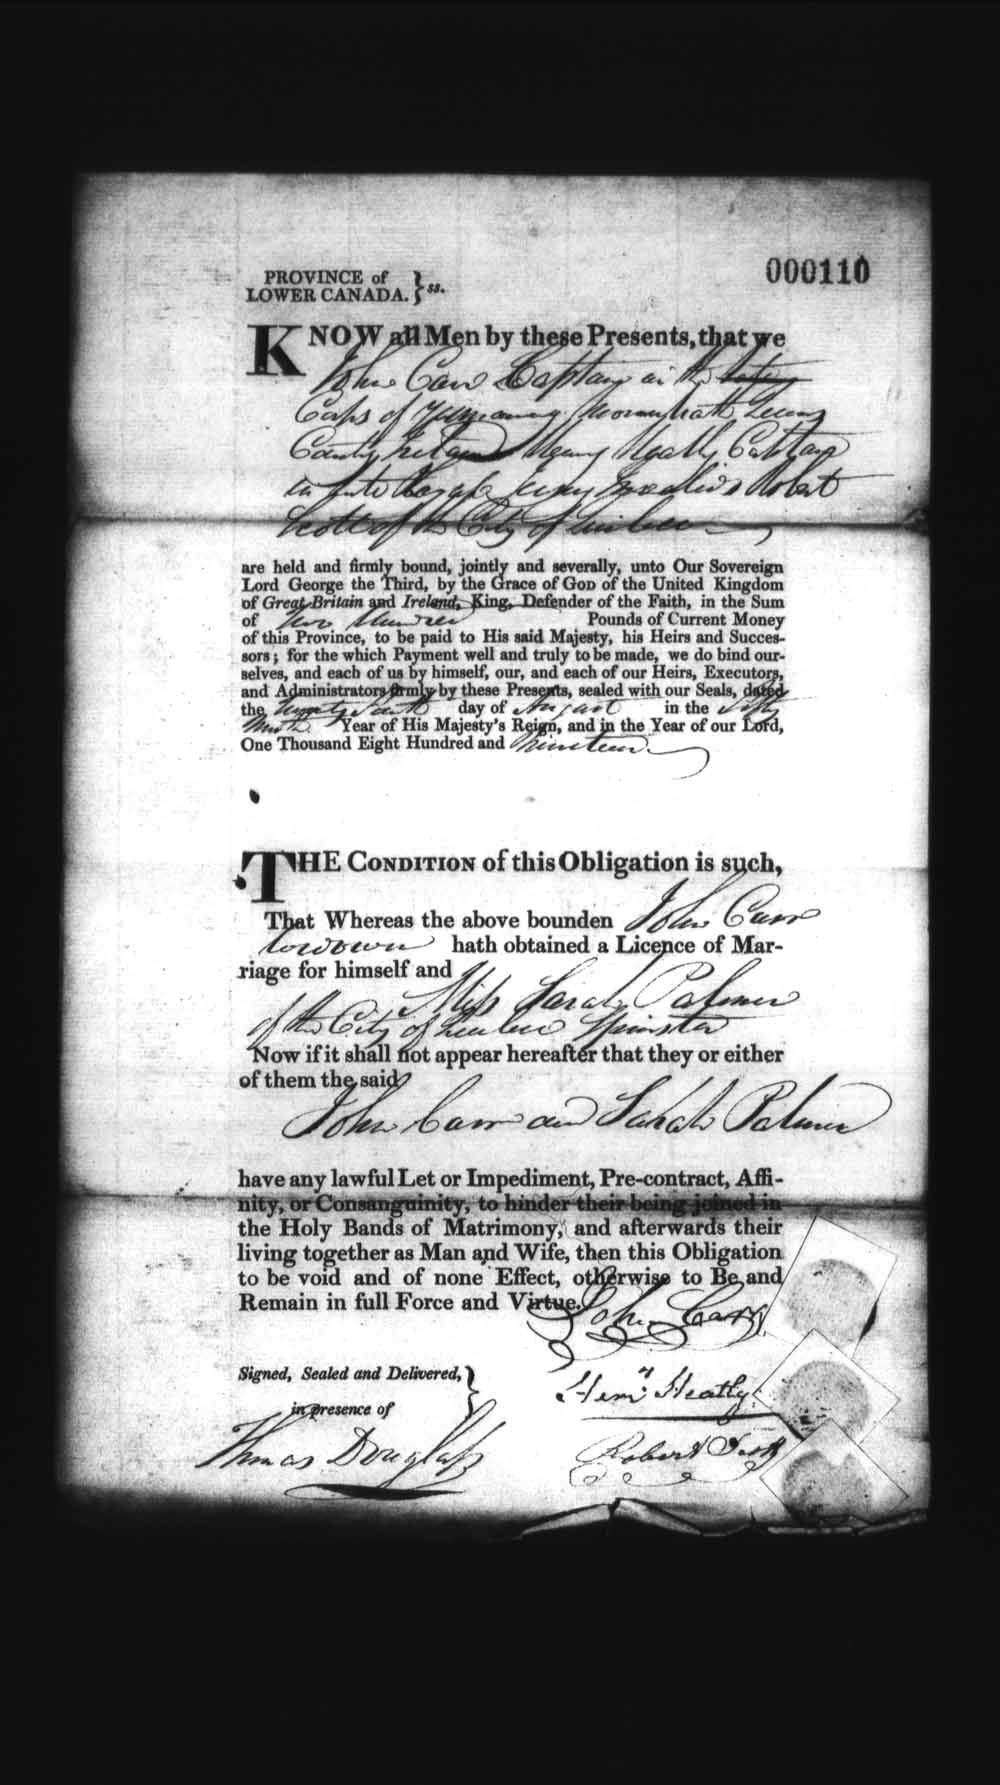 000110
PROVINCE of
LOWER CANADA. } ss.
KNOW all Men by these Presents, that we
John Carr Captain in the
Corps of
County Henry Heatly Captain
in Robert
Scott of the City of Quebec
are held and firmly bound, jointly and severally, unto Our Sovereign
Lord George the Third, by the Grace of GOD of the United Kingdom
of Great Britain and Ireland, King, Defender of the Faith, in the Sum
of Two Hundred Pounds of Current Money
of this Province, to be paid to His said Majesty, his Heirs and Succes-
sors; for the which Payment well and truly to be made, we do bind our-
selves, and each of us by himself, our, and each of our Heirs, Executors,
and Administrators firmly by these Presents, sealed with our Seals, dated
the day of August in the Fifty
Ninth Year of His Majesty's Reign, and in the Year of our Lord,
One Thousand Eight Hundred and Nineteen
THE CONDITION of this Obligation is such,
That Whereas the above bounden John Carr
Widower hath obtained a Licence of Mar-
riage for himself and
Miss Sarah Palmer
of the City of Quebec Spinster
Now if it shall not appear hereafter that they or either
of them the said
John Carr and Sarah Palmer
have any lawful Let or Impediment, Pre-contract, Affi-
nity, or Consanguinity, to hinder their being joined in
the Holy Bands of Matrimony, and afterwards their
living together as Man and Wife, then this Obligation
to be void and of none Effect, otherwise to Be and
Remain in full Force and Virtue.
John Carr
Signed, Sealed and Delivered, }
Heny Heatly
in presence of
Thomas Douglass
Robert